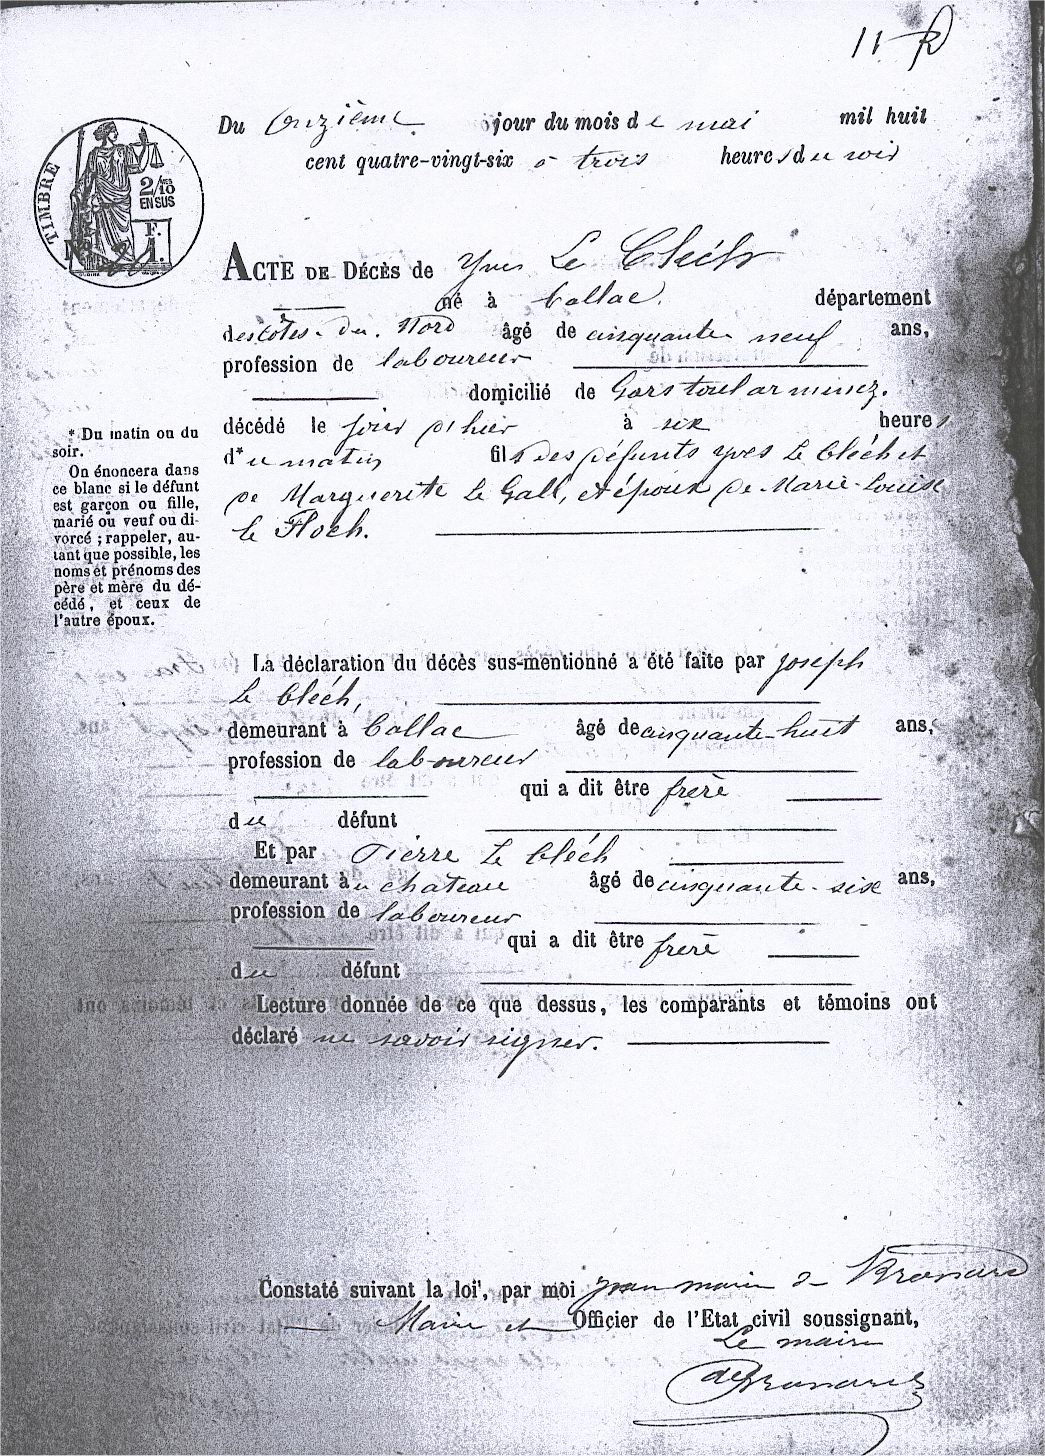 11
Du Onzième jour du mois de mai mil huit
cent quatre-vingt-six à trois heures du soir
TIMBRE
2/10 EN SUS
F.
1.
ACTE DE DÉCÈS de Yves Le Cléch
né à Callac. département
des Côtes-du-Nord âgé de cinquante neuf ans,
profession de laboureur
domicilié de Garstoularminez.
décédé le jour d'hier à six heures
d*u matin fils des défunts Yves Le Cléch et
de Marguerite Le Gall, et époux de Marie-Louise
le Floch.
* Du matin ou du
soir.
On énoncera dans
ce blanc si le défunt
est garçon ou fille,
marié ou veuf ou di-
vorcé ; rappeler, au-
tant que possible, les
noms et prénoms des
père et mère du dé-
cédé, et ceux de
l'autre époux.
La déclaration du décès sus-mentionné a été faite par Joseph
Le Cléch,
demeurant à Callac âgé de cinquante-huit ans,
profession de laboureur
qui a dit être frère
du défunt
Et par Pierre Le Cléch
demeurant au chateau âgé de cinquante-six ans,
profession de laboureur
qui a dit être frère
du défunt
Lecture donnée de ce que dessus, les comparants et témoins ont
déclaré ne savoir signer.
Constaté suivant la loi, par moi Jean marie
Maire et Officier de l'Etat civil soussignant,
Le maire